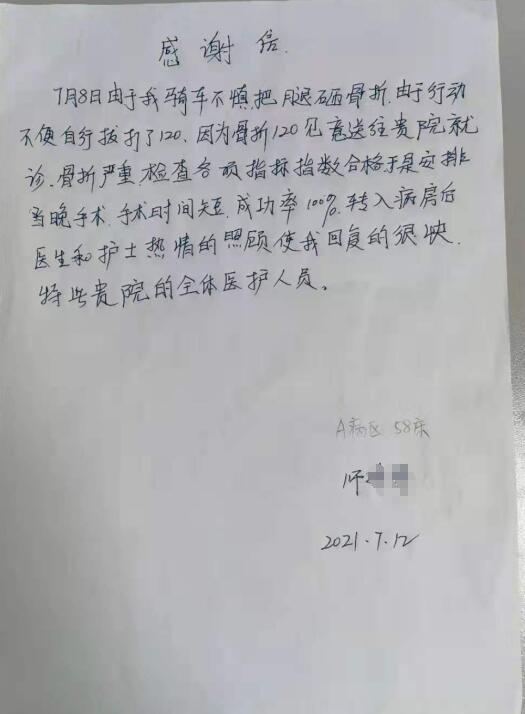 感谢信.
7月8日由于我骑车不慎把腿砸骨折.由于行动
不便自行拔打了120、因为骨折120见意送往贵院就
诊、骨折严重.检查各项指标指数合格于是安排
当晚手术.手术时间短.成功率100%.转入病房后
医生和护士热情的照顾使我回复的很快.
特此贵院的全体医护人员。
A病区 58床
师
2021.7.12